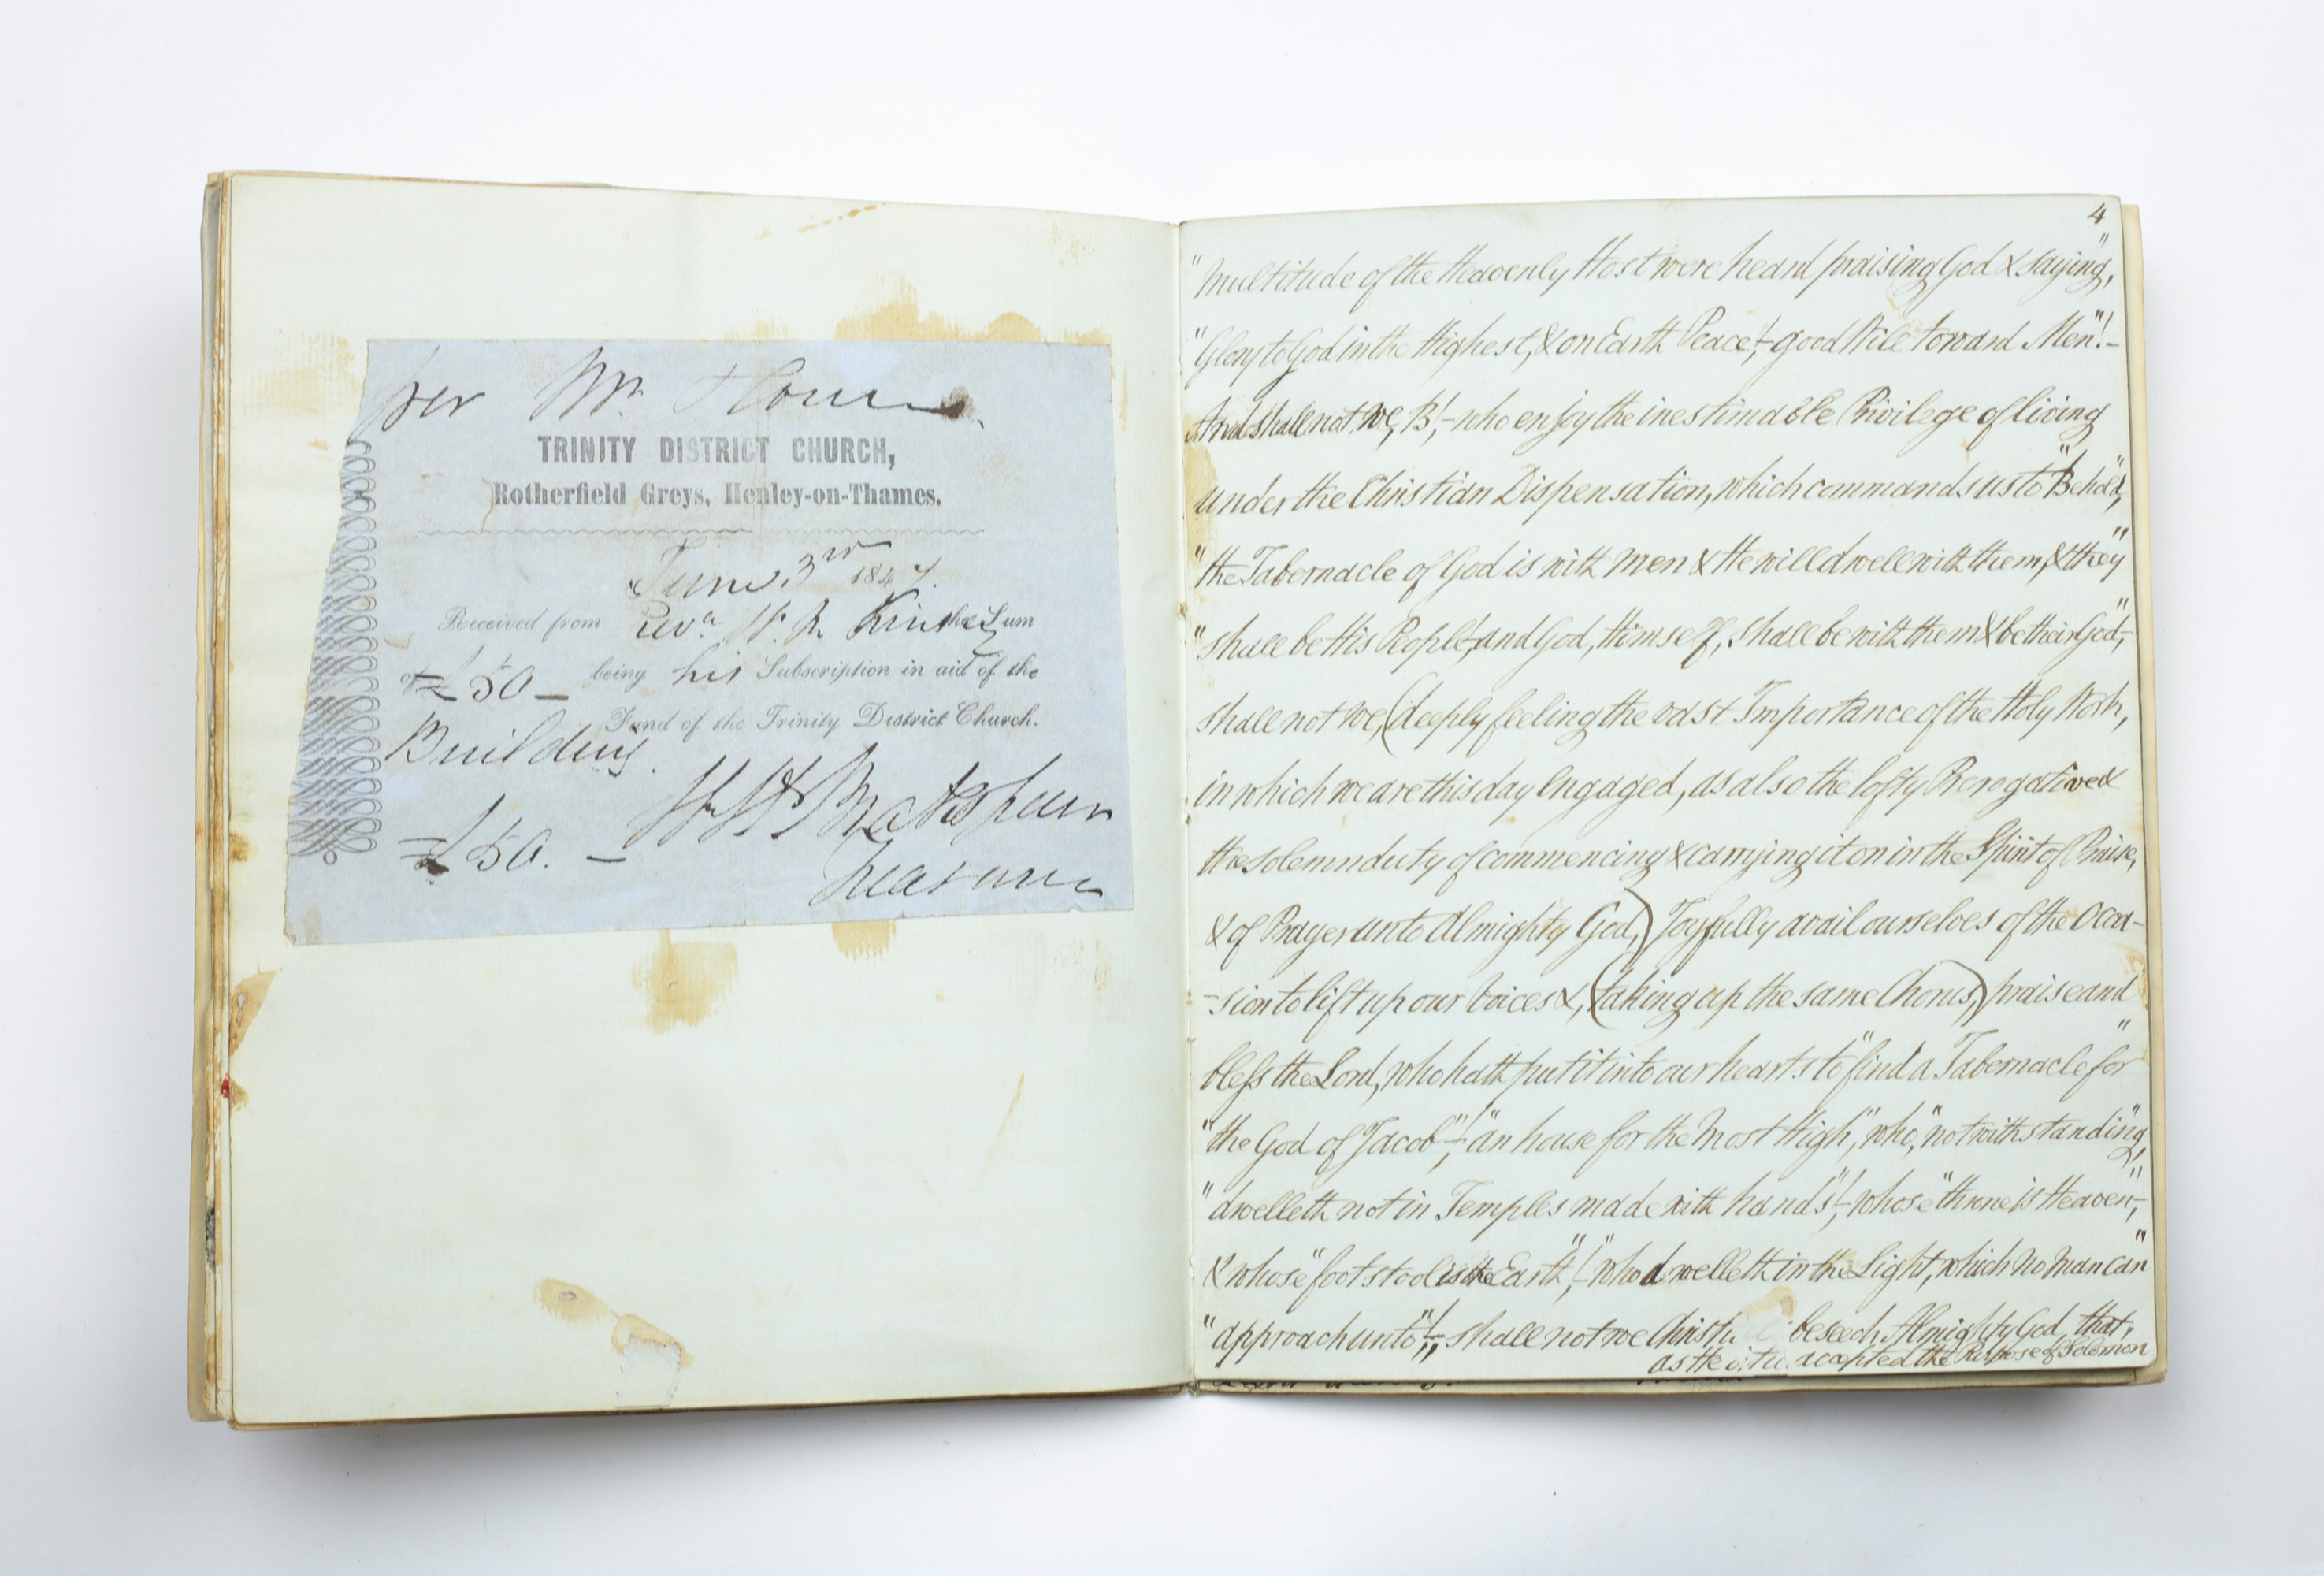 per Mr.
TRINITY DISTRICT CHURCH,
Rotherfield Greys, Henley-on-Thames.
June 3rd 1847.
Received from Revd. W. the Sum
of £50 – being his Subscription in aid of the
Building Fund of the Trinity District Church.
£50. –
Treasurer
4
"Multitude of the Heavenly Host were heard praising God & saying,"
"Glory to God in the Highest, & on Earth Peace!, – good Will toward Men"! –
And shall not We, B!, – who enjoy the inestimable Privilege of living
under the Christian Dispensation, which commands us to "Behold,"
"the Tabernacle of God is with men & He will dwell with them, & they"
"shall be His People, and God, Himself, shall be with them & be their God", –
shall not We, (deeply feeling the vast Importance of the Holy Work,
in which we are this day Engaged, as also the lofty Prerogative &
the solemn duty of commencing & carrying it on in the Spirit of Praise,
& of Prayer unto Almighty God,) Joyfully avail ourselves of the Occa-
-sion to lift up our Voices &, (taking up the same Chorus,) praise and
bless the Lord, who hath put it into our hearts to "find a Tabernacle for"
"the God of Jacob"!, – "an house for the Most High", who, "notwithstanding,"
"dwelleth not in Temples made with hands"!, – whose "throne is Heaven", –
& whose "footstool is the Earth"!, – "who dwelleth in the Light, which no Man can"
"approach unto"!, – shall not we beseech Almighty God, that,
as He accepted the Purpose of Solomon